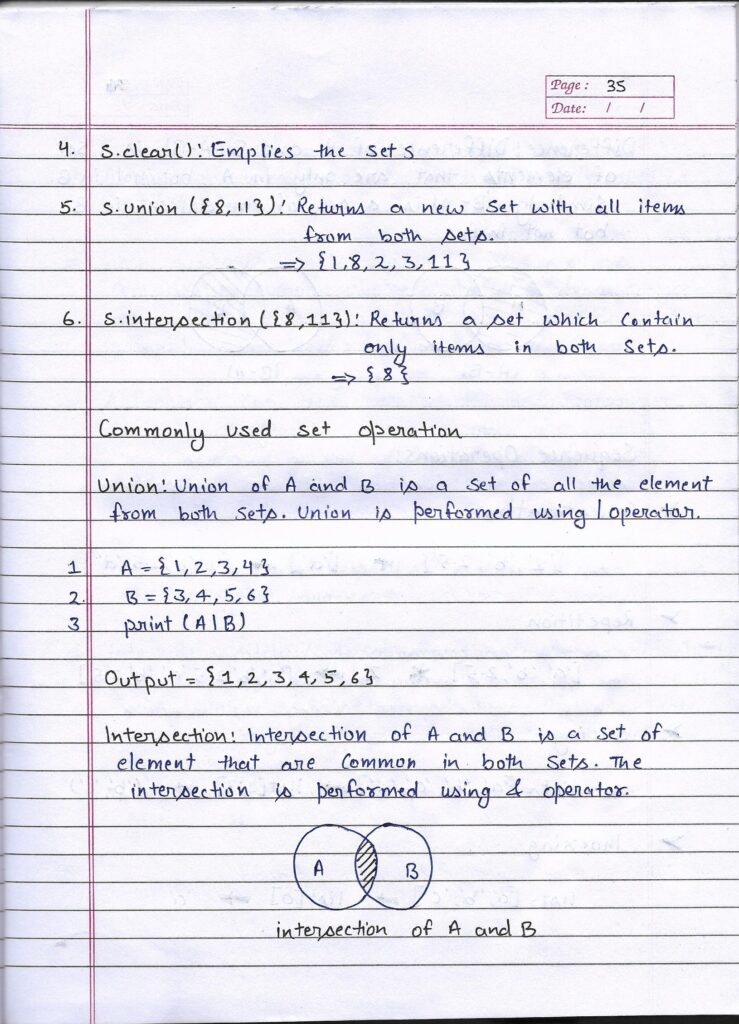 Page: 35
Date: / /
4. S.clear(): Emplies the set s
5. S.union ({8,11}): Returns a new set with all items
from both sets.
=> {1,8,2,3,11}
6. S.intersection ({8,11}): Returns a set which Contain
only items in both Sets.
=> {8}
Commonly used set operation
Union: Union of A and B is a set of all the element
from both sets. Union is performed using | operator.
1 A = {1,2,3,4}
2. B = {3,4,5,6}
3 print (A|B)
Output = {1,2,3,4,5,6}
Intersection: Intersection of A and B is a set of
element that are Common in both Sets. The
intersection is performed using & operator.
A B
intersection of A and B